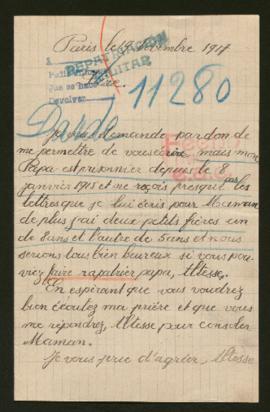 Paris le Décembre 1917
REPATRIACION
MILITAR
que se hace
Devolver
11280
Je vous demande pardon de
me permettre de vous écrire mais mon
Papa est prisonnier depuis le
janvier 1915 et ne reçois presque pas les
lettres que je lui écris pour Maman
de plus j'ai deux petits frères un
de 8 ans et l'autre de 5 ans et nous
serions tous bien heureux si vous pou-
viez faire rapatrier papa, Altesse,
En espérant que vous voudrez
bien écoutez ma prière et que vous
me répondrez, Altesse pour consoler
Maman.
Je vous prie d'agréer, Altesse